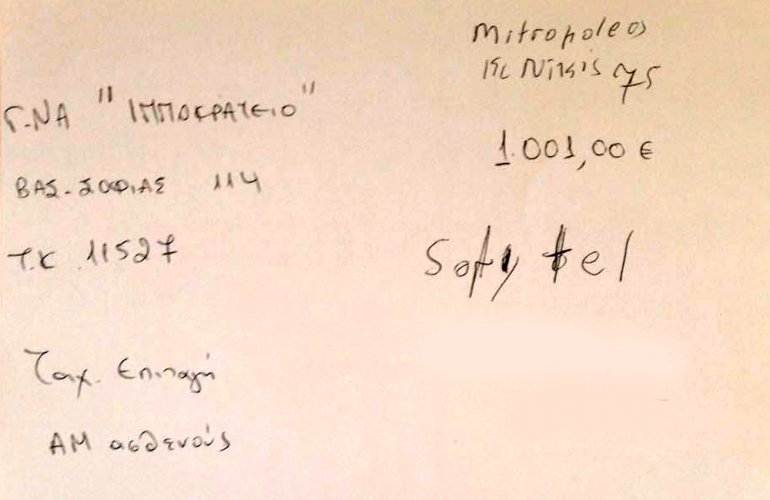 Γ.ΝΑ "ΙΠΠΟΚΡΑΤΕΙΟ"
ΒΑΣ. ΣΟΦΙΑΣ 114
Τ.Κ 11527
Ταχ. Επιταγή
ΑΜ ασθενούς
Mitropoleos
Κ Nikis 75
1.001,00 €